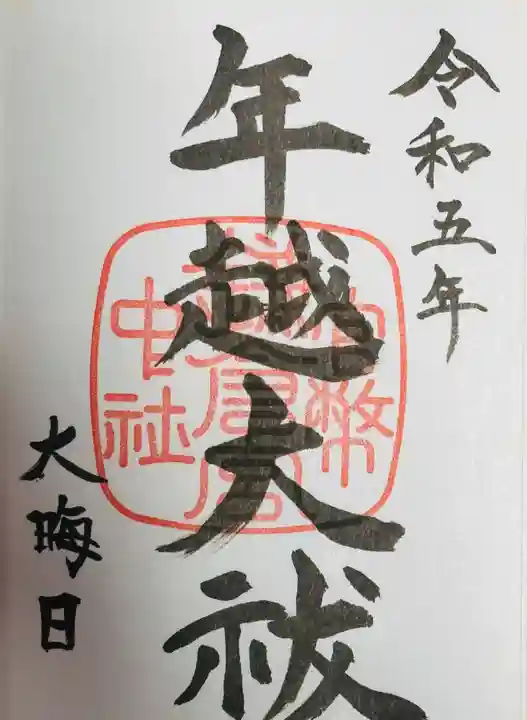 令和五年
年越大祓
大晦日
官幣
鎌倉宮
中社